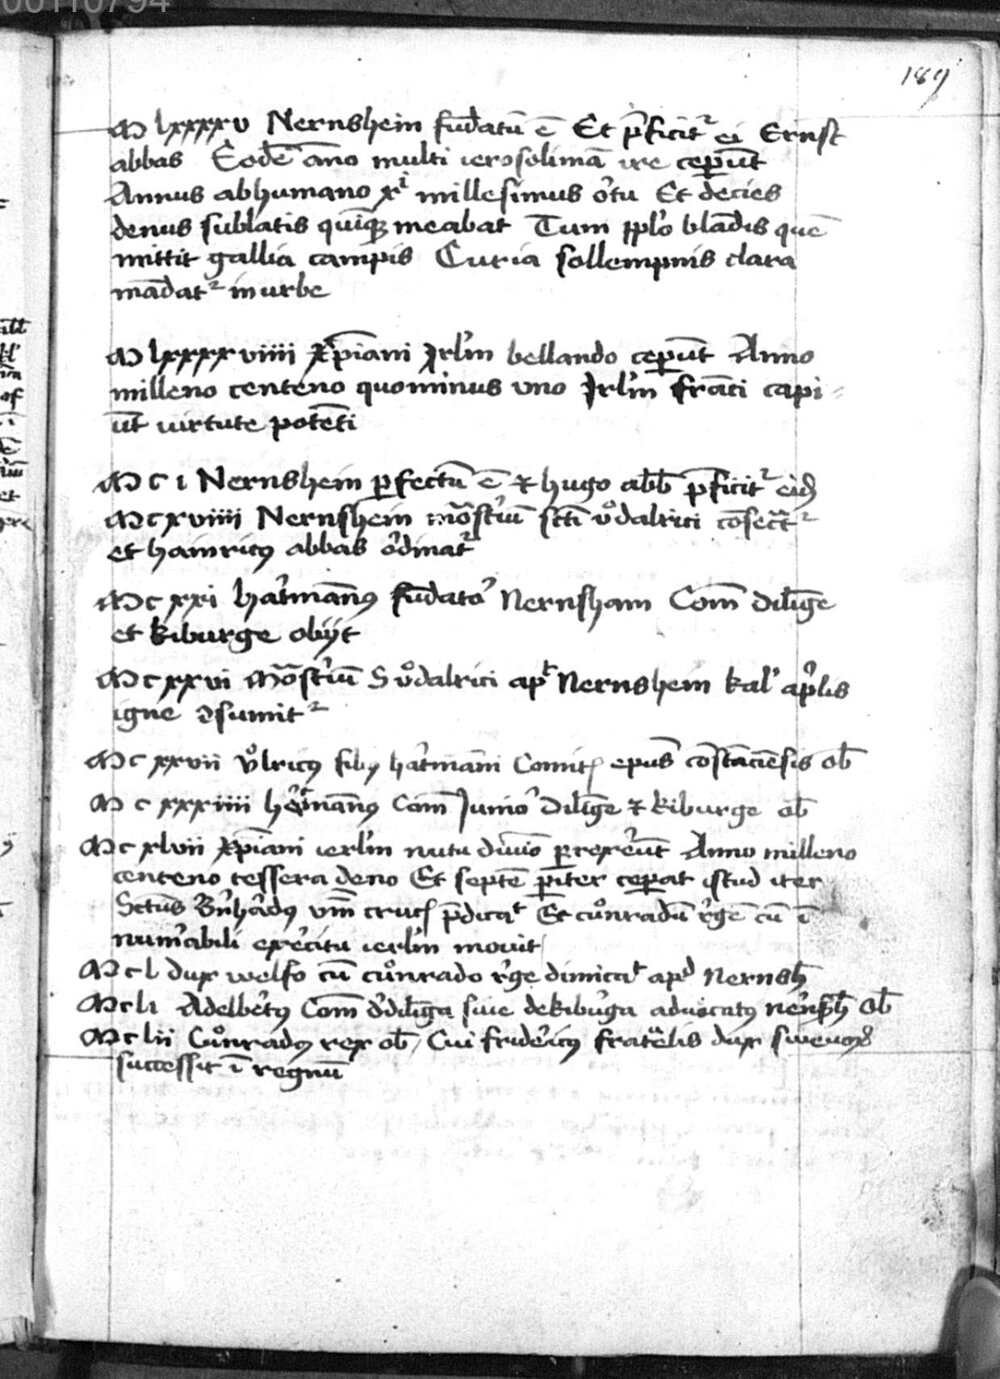 00110794
189
M lxxxxv Nernshein fūdatū ē Et p̄ficit᷑ ei Ernst
abbas Eodē āno multi ierosolimā ire cepūt
Annus abhumano xi millesimus ortu Et decies
denus sublatis quīq; meabat Tum pplo blādis quē
mittit gallia campis Curia sollempnis clara
mādat᷑ in urbe
M lxxxxviiii xp̄iani Jrlm̄ bellando cepūt Anno
milleno centeno quominus uno Jrlm̄ frāci capi
ūt virtute potēti
M c i Nernshein ꝑfectū ē ⁊ hugo abb̄ p̄ficit᷑ eid
M c xviiii Nernshein mōst'iū scti vͦdalrici cōsecrat᷑
et hainricꝰ abbas ordinat᷑
M c xxi hartmānꝰ fūdator Nernsham Com̄ dilīge
et kiburge obijt
M c xxvi Mōst'iū S vͦdalrici ap Nernshein kal' ap'lis
igne ɔsumit᷑
M c xxvii vͦlricꝰ filiꝰ hartmāni Comit epus cōstāciēsis ob̄
M c xxxiiii hartmānꝰ Com̄ Junior dilīge ⁊ kiburge ob̄
M c xlvii xp̄iani ierlm̄ nutu diuīo ꝑrexerūt Anno milleno
centeno tessera deno Et septē pariter ceperat istud iter
Sctūs Bn̄hardꝰ vm̄ crucꝭ p̄dicat Et cuͦnradū regē cū ī
num'abili exercitu ierlm̄ mouit
M c l dux welfo cū cuͦnrado rege dimicat apd Nernsh̄
M c li Adelbertꝰ Com̄ d' dilīga siue dekiburga aduocatus nernsh̄ ob̄
M c lii Cuͦnradꝰ rex ob̄ / Cui fridericꝰ fratuelis dux sweuoꝝ
successit ī regnū